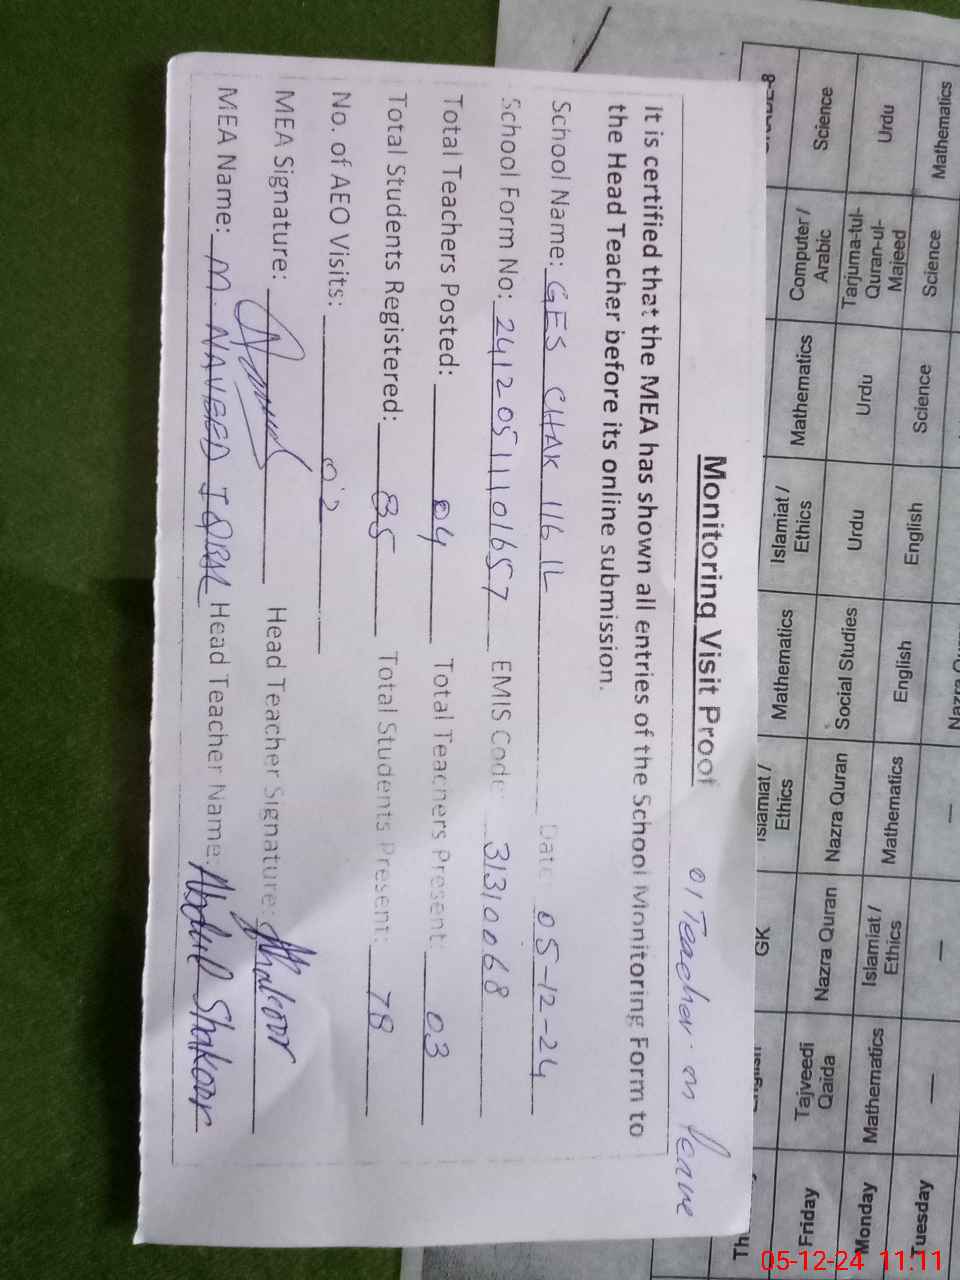 Monitoring Visit Proof
01 Teacher on leave
It is certified that the MEA has shown all entries of the School Monitoring Form to
the Head Teacher before its online submission.
School Name: GES CHAK 116 1L Date: 05-12-24
School Form No: 241205111101657 EMIS Code: 31310068
Total Teachers Posted: 04 Total Teachers Present: 03
Total Students Registered: 85 Total Students Present: 78
No. of AEO Visits: 02
MEA Signature: Head Teacher Signature: Shakoor
MEA Name: M. NAVEED IQBAL Head Teacher Name: Abdul Shakoor
GK Islamiat / Ethics Mathematics Islamiat / Ethics Mathematics Computer / Arabic Science
Friday Tajveedi Qaida Nazra Quran Nazra Quran Social Studies Urdu Urdu Tarjuma-tul-Quran-ul-Majeed Urdu
Monday Mathematics Islamiat / Ethics Mathematics English English Science Science Mathematics
Tuesday — — —
05-12-24 11:11